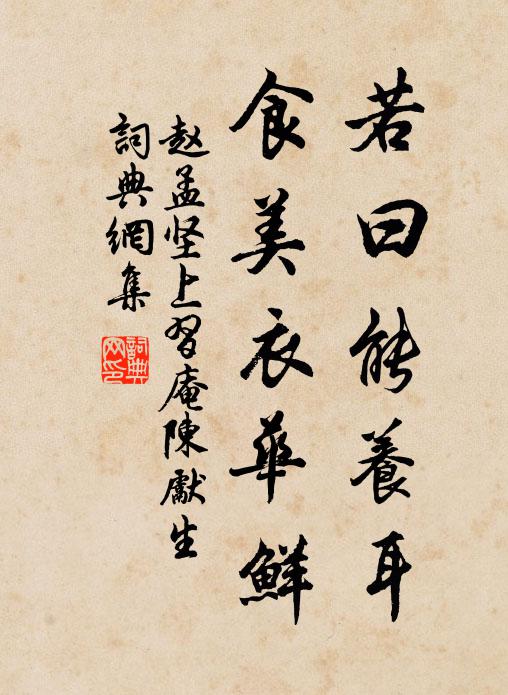 若曰能養耳
食美衣華鮮
赵孟坚上習庵陳獻生
詞典網集
詞典网印